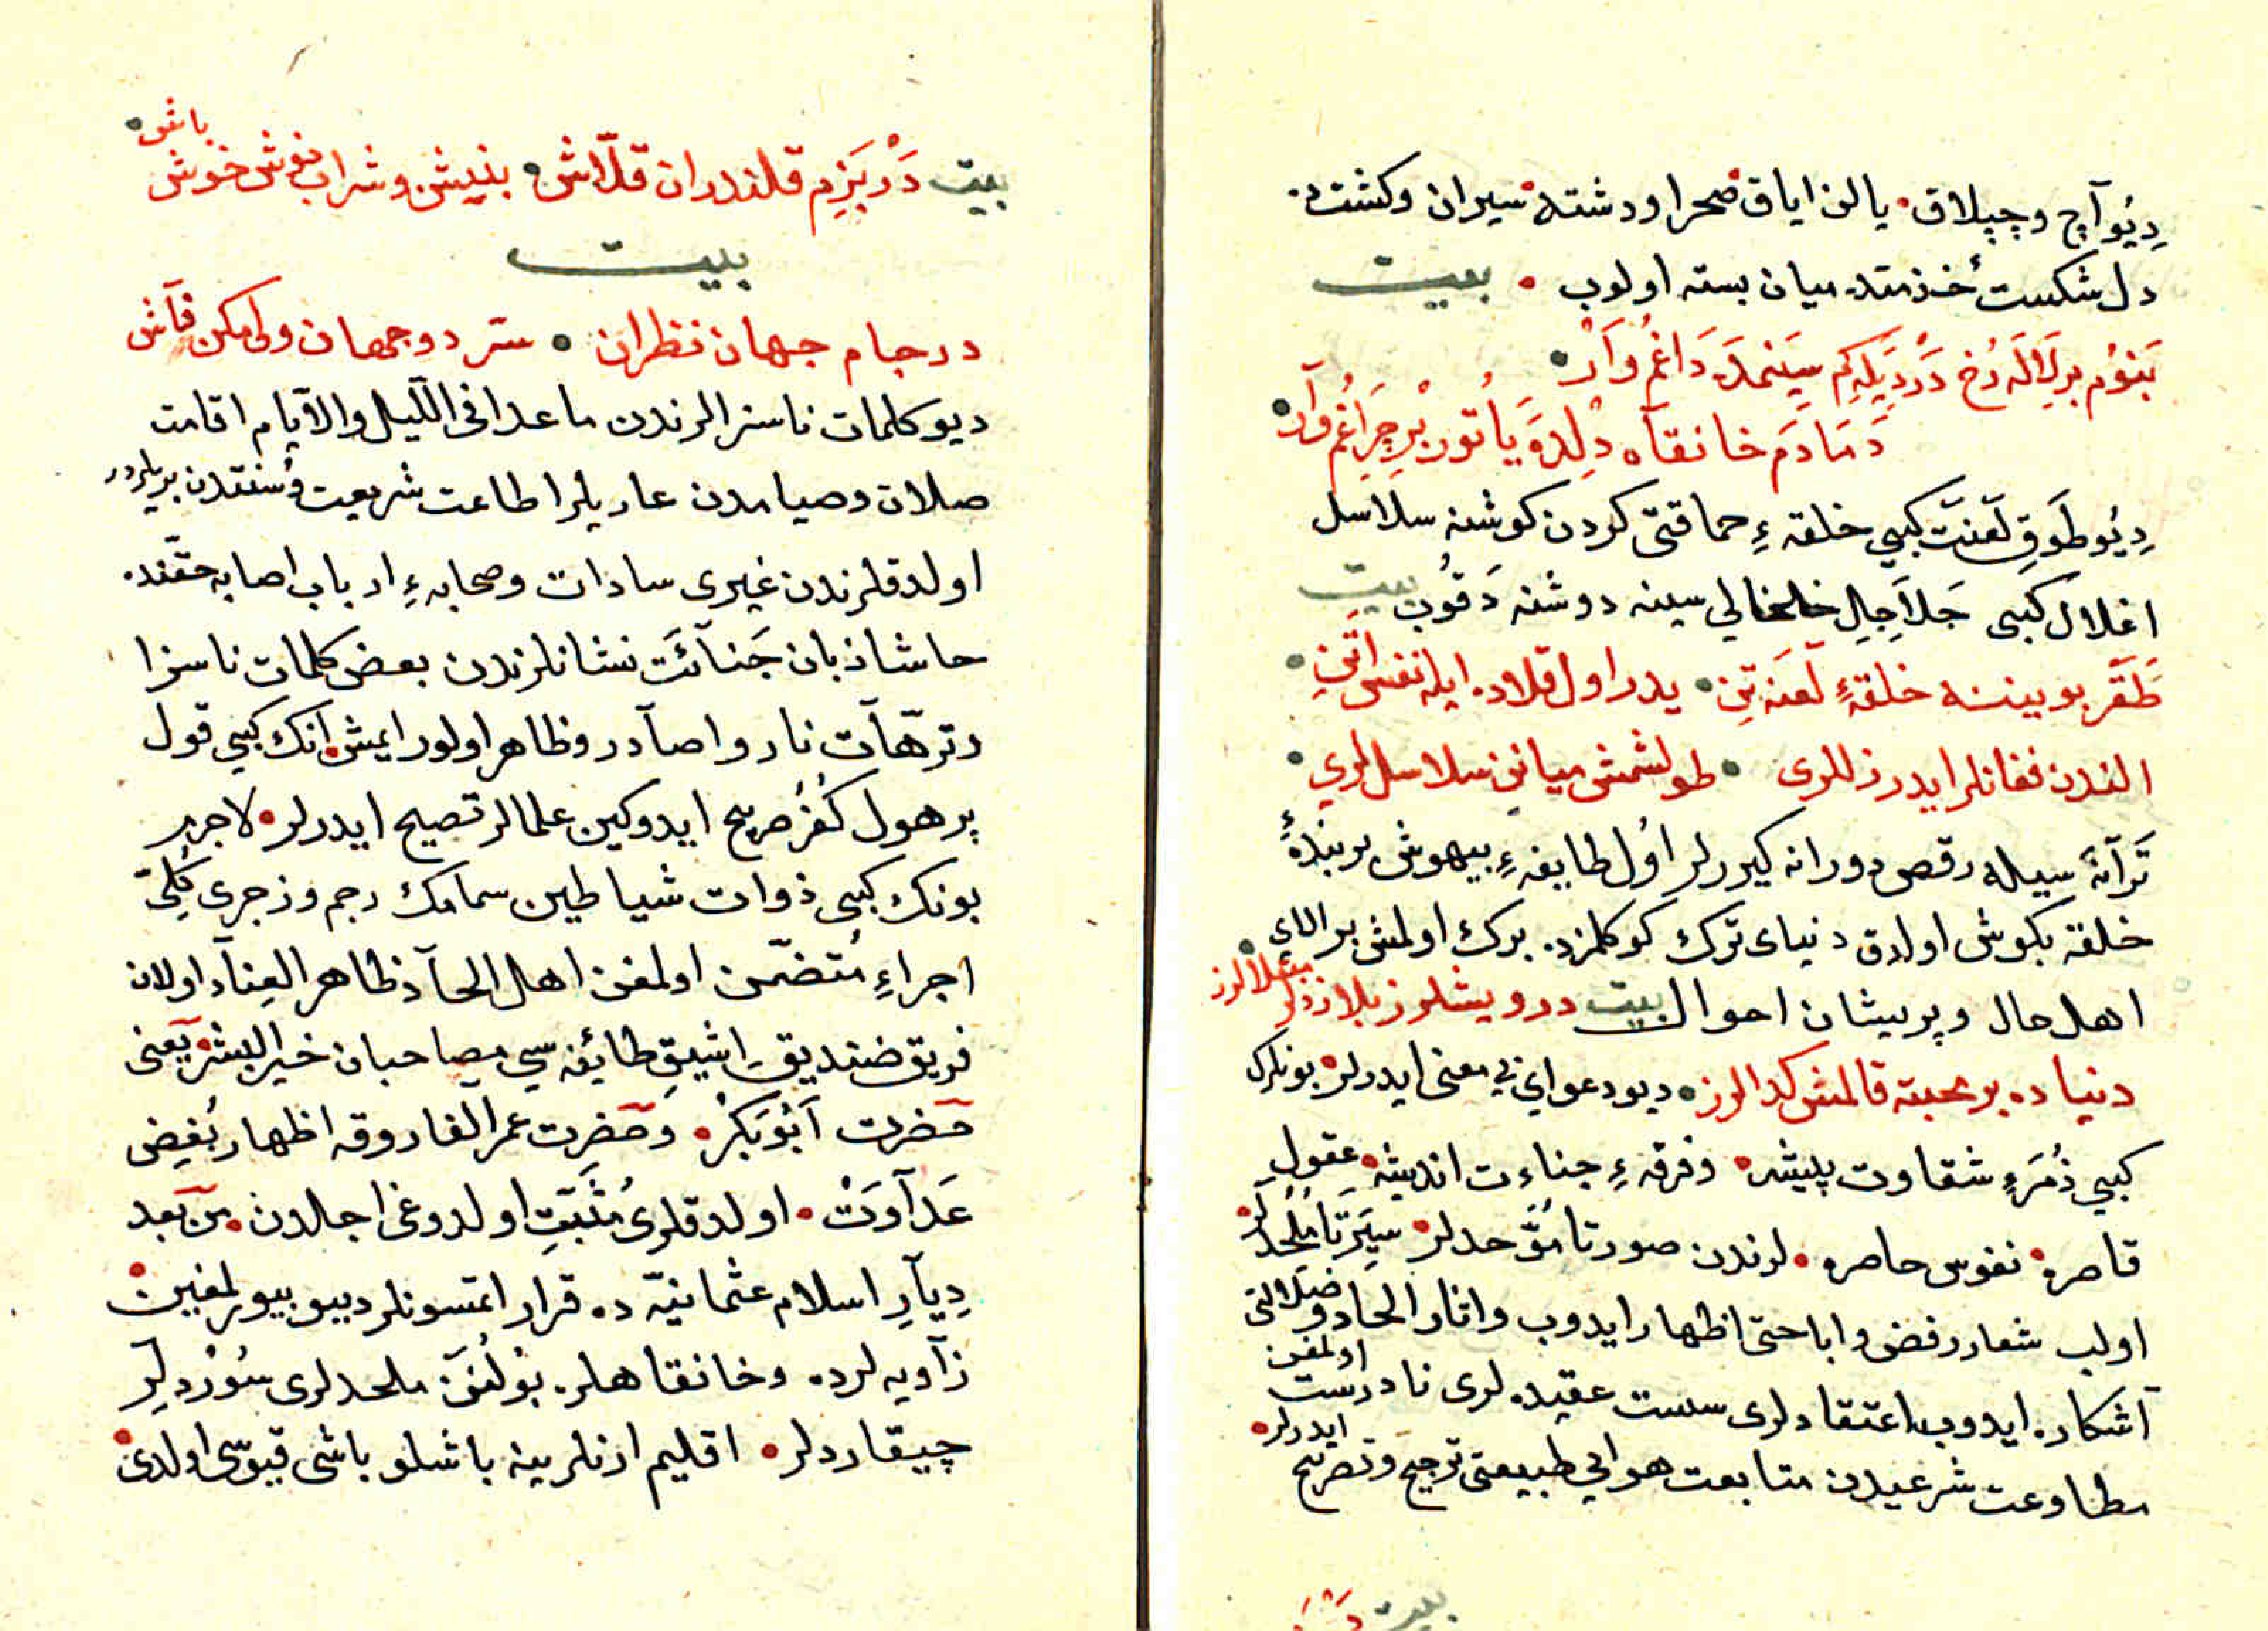 دِيُو آچ و چپلاق • يالن اياق • صحرا و دشته • سيران و كشتده
دل شكست خذمتده ميان بسته اولوب • بيت
بَنوُم بر لَالَه رُخ دَرْدِيَله كِم سِينَمدَه دَاغُم وَارْ •
دَمَادَم خانقآه دِلدَه يانُور بْر چِرَاغُم وآرْ •
دِيُو طَوَقِ لَعْنَت كبي خلقه ءِ حماقتى كردن كوشنه سلاسل
اغلال كبى جَلاَجِلِ خلخالي سينه دوشنه دَقُوب بيت
طَقَر بوينينه خلقهٔ لَعنَه تِن • يدر اول قلاده ايله نفس اتِن •
الندن فغانلر ايدر زللرى • طولشمش ميانن سلاسللرى •
تَرآنَه سيله رقص دورانه كيررلر اوُل طايفه ءِ بيهوش بربندهٔ
خلقه بكوش اولدق دنياى ترك كوكلمزده برك اولمش بر الاى
اهل حال و پريشان احوال بيت درويشلرز بلا زدلر مبتلالرز •
دنياده بر محبته قالمش كدالرز • ديو دعواي بي معنى ايدرلر • بونلرك
كبي زُمَرهِٔ شقاوت پيشه • و فرقه ءِ جناءت انديشه • عقولِ
قاصره • نفوس حاصره • لرندن صورتا مُوَّحدلر • سيرَتَا مُلحُدلَر •
اولب شعار رفض و اباحتى اظهار ايدوب و اثار الحاد و ضلالتى
آشكاره ايدوب اعتقادلرى سست عقيده لرى نادرست اولمغن
مطاوعت شرعيدن متابعت هواي طبيعتى ترجيح و تصريح ايدرلر •
بيت دَرْ
بيت دَرْ بَزِم قلندران قلّاش • بنيش و شراب نوش خوش باش •
بيت
در جام جهان نظران • ستر دو جهان ولى مكن فآش
ديو كلمات ناسزالرندن ماعدا فى الّليل والآيام اقامت
صلات و صيامدن عاريلر اطاعت شريعت و سُنتدن بريلردر
اولدقلرندن غيرى سادات و صحابه ءِ ارباب اصابه حقّنده
حاشا زبان جَنآئَت نشانلرندن بعض كلمات ناسزا
و ترّهآت ناروا صآدر و ظاهر اولور ايمش • انك كبي قول
پر هول كُفْر صريح ايدوكين علمالر تصيح ايدرلر • لاجرم
بونك كبى ذوات شياطين سمامك رجم و زجرى كُلِىّ
اجراءِ مُتضمّن اولمغن اهل الحآد ظاهر العِنآد اولان
فريق ضنديق اشيقِ طائفه سي مصاحبان خير البشر • يَعنى
حَضرت اَبُوبَكْر • و حَضرت عمر الفاروقه اظهار بُغضِ
عَدآوَتْ • اولدقلرى مُثَبّتِ اولدوغى اجلدن • مِن بَعد
دِيآرِ اسلام عثمانيّه ده قرار اتمسونلر ديبو بيورلمغين •
زآويه لرده و خانقاهلرده بوُلُنَن ملحدلرى سُوُرْدِيلَر
چيقاردلر • اقليم ارنلرينه باشلو باشى قپوسى اولدى •